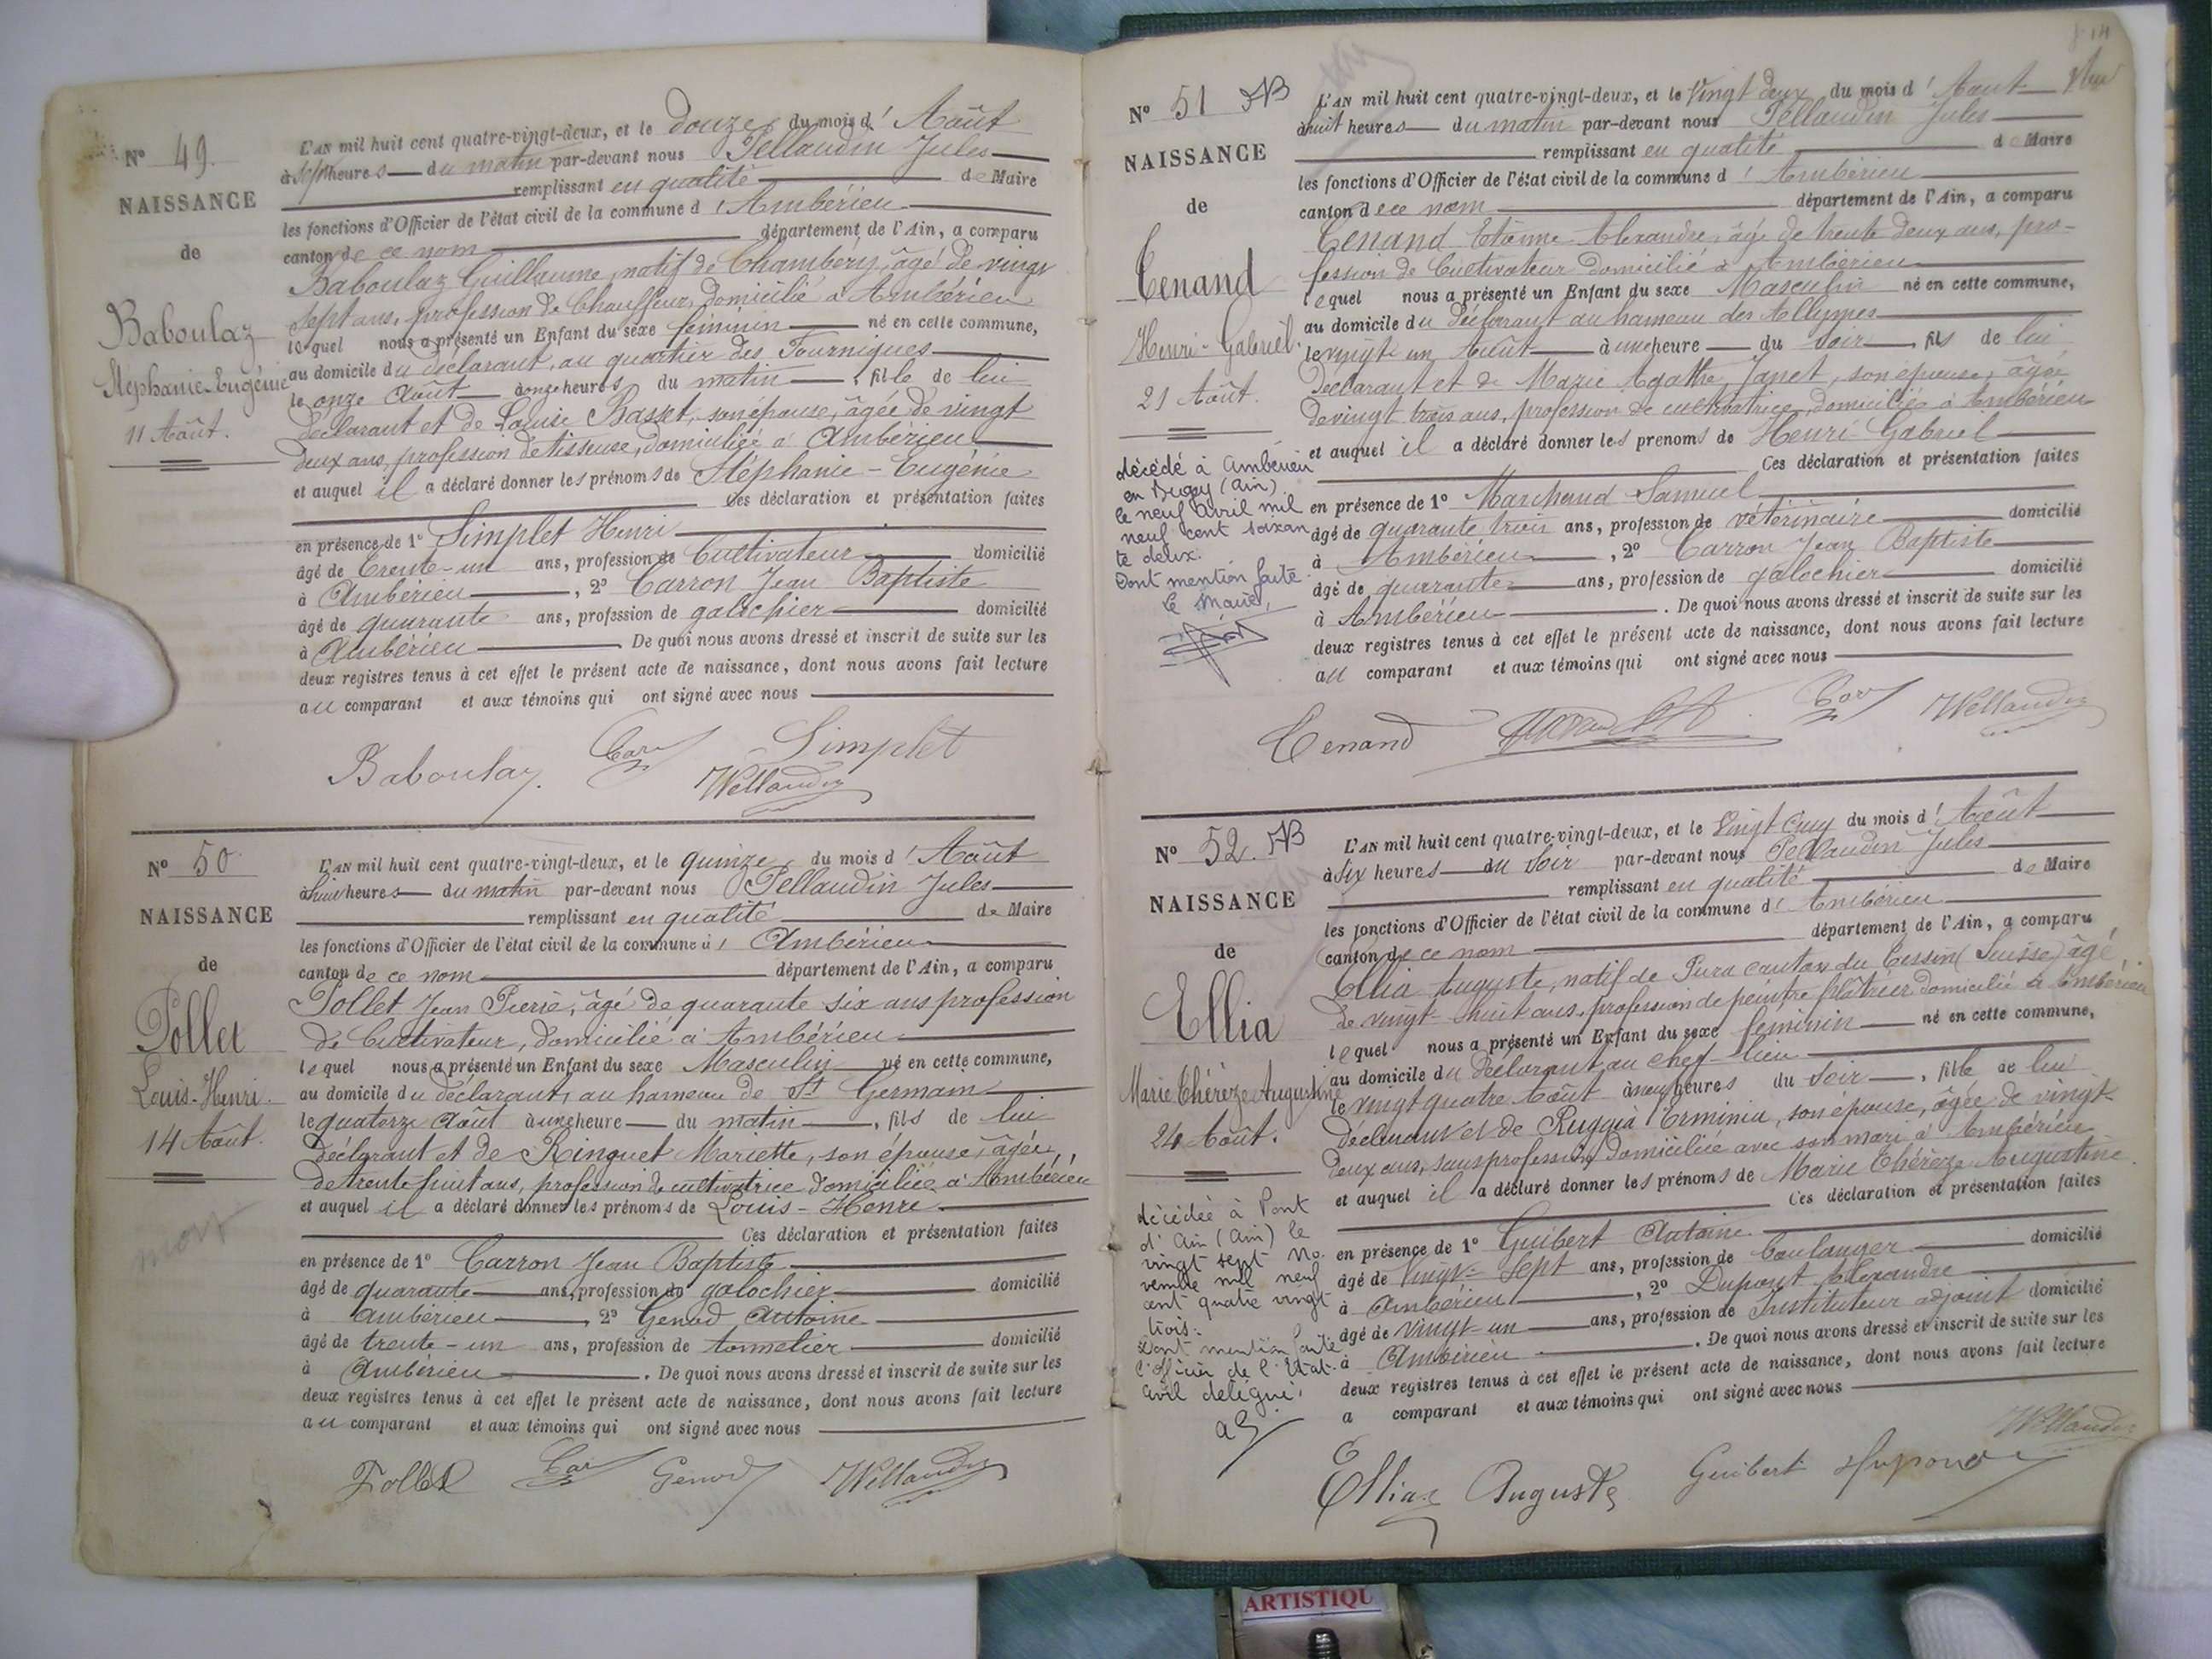 N° 49.
NAISSANCE
de
Baboulaz
Stéphanie-Eugénie
11 Août.
L'AN mil huit cent quatre-vingt-deux, et le douze du mois d'Août
à sept heures du matin par-devant nous Pellaudin Jules
remplissant en qualité de Maire
les fonctions d'Officier de l'état civil de la commune d'Ambérieu
canton de ce nom département de l'Ain, a comparu
Baboulaz Guillaume, natif de Chambéry, âgé de vingt
sept ans, profession de Chauffeur, domicilié à Ambérieu
lequel nous a présenté un Enfant du sexe féminin né en cette commune,
au domicile du déclarant, au quartier des Tourniques
le onze Août à onze heures du matin, fille de lui
déclarant et de Louise Basset, son épouse, âgée de vingt
deux ans, profession de tisseuse, domiciliée à Ambérieu
et auquel il a déclaré donner les prénoms de Stéphanie-Eugénie
Ces déclaration et présentation faites
en présence de 1° Simplet Henri
âgé de trente-un ans, profession de Cultivateur domicilié
à Ambérieu, 2° Carron Jean Baptiste
âgé de quarante ans, profession de galochier domicilié
à Ambérieu. De quoi nous avons dressé et inscrit de suite sur les
deux registres tenus à cet effet le présent acte de naissance, dont nous avons fait lecture
au comparant et aux témoins qui ont signé avec nous
Baboulaz Car Simplet
Pellaudin
N° 50
NAISSANCE
de
Pollet
Louis-Henri.
14 Août.
L'AN mil huit cent quatre-vingt-deux, et le quinze du mois d'Août
à huit heures du matin par-devant nous Pellaudin Jules
remplissant en qualité de Maire
les fonctions d'Officier de l'état civil de la commune d'Ambérieu
canton de ce nom département de l'Ain, a comparu
Pollet Jean Pierre, âgé de quarante six ans profession
de Cultivateur, domicilié à Ambérieu
lequel nous a présenté un Enfant du sexe Masculin né en cette commune,
au domicile du déclarant, au hameau de St Germain
le quatorze Août à une heure du matin, fils de lui
déclarant et de Ringuet Mariette, son épouse, âgée
de trente huit ans, profession de cultivatrice domiciliée à Ambérieu
et auquel il a déclaré donner les prénoms de Louis-Henri
Ces déclaration et présentation faites
en présence de 1° Carron Jean Baptiste
âgé de quarante ans, profession de galochier domicilié
à Ambérieu, 2° Genod Antoine
âgé de trente-un ans, profession de tonnelier domicilié
à Ambérieu. De quoi nous avons dressé et inscrit de suite sur les
deux registres tenus à cet effet le présent acte de naissance, dont nous avons fait lecture
au comparant et aux témoins qui ont signé avec nous
Pollet Car Genod Pellaudin
N° 51
NAISSANCE
de
Tenand
Henri-Gabriel.
21 Août.
décédé à Ambérieu
en Bugey (Ain)
le neuf avril mil
neuf cent soixan
te deux.
Dont mention faite.
le Maire,
L'AN mil huit cent quatre-vingt-deux, et le Vingt deux du mois d'Août
à huit heures du matin par-devant nous Pellaudin Jules
remplissant en qualité de Maire
les fonctions d'Officier de l'état civil de la commune d'Ambérieu
canton de ce nom département de l'Ain, a comparu
Tenand Etienne Alexandre, âgé de trente deux ans, pro-
fession de Cultivateur domicilié à Ambérieu
lequel nous a présenté un Enfant du sexe Masculin né en cette commune,
au domicile du déclarant au hameau des Allymes
le vingt un Août à une heure du soir, fils de lui
déclarant et de Marie Agathe Janet, son épouse, âgée
de vingt trois ans, profession de cultivatrice, domiciliée à Ambérieu
et auquel il a déclaré donner les prenoms de Henri Gabriel
Ces déclaration et présentation faites
en présence de 1° Marchand Samuel
âgé de quarante trois ans, profession de vétérinaire domicilié
à Ambérieu, 2° Carron Jean Baptiste
âgé de quarante ans, profession de galochier domicilié
à Ambérieu. De quoi nous avons dressé et inscrit de suite sur les
deux registres tenus à cet effet le présent acte de naissance, dont nous avons fait lecture
au comparant et aux témoins qui ont signé avec nous
Tenand Car Pellaudin
N° 52.
NAISSANCE
de
Ellia
Marie Thérèze Augustine
24 Août.
décédée à Pont
d'Ain (Ain) le
vingt sept no-
vembre mil neuf
cent quatre vingt
trois.
Dont mention faite.
l'Officier de l'Etat-
civil délégué,
L'AN mil huit cent quatre-vingt-deux, et le Vingt Cinq du mois d'Août
à Six heures du soir par-devant nous Pellaudin Jules
remplissant en qualité de Maire
les fonctions d'Officier de l'état civil de la commune d'Ambérieu
canton de ce nom département de l'Ain, a comparu
Ellia Auguste, natif de Pura canton du Tessin (Suisse) âgé
de vingt-huit ans, profession de peintre plâtrier domicilié à Ambérieu
lequel nous a présenté un Enfant du sexe féminin né en cette commune,
au domicile du déclarant au chef-lieu
le vingt quatre Août à neuf heures du soir, fille de lui
déclarant et de Ruggia Erminia, son épouse, âgée de vingt
deux ans, sans profession, domiciliée avec son mari à Ambérieu
et auquel il a déclaré donner les prénoms de Marie Thérèze Augustine
Ces déclaration et présentation faites
en présence de 1° Guibert Antoine
âgé de Vingt-Sept ans, profession de boulanger domicilié
à Ambérieu, 2° Dupont Alexandre
âgé de vingt-un ans, profession de Instituteur adjoint domicilié
à Ambérieu. De quoi nous avons dressé et inscrit de suite sur les
deux registres tenus à cet effet le présent acte de naissance, dont nous avons fait lecture
a comparant et aux témoins qui ont signé avec nous
Pellaudin
Ellia Auguste Guibert Dupont
ARTISTIQU